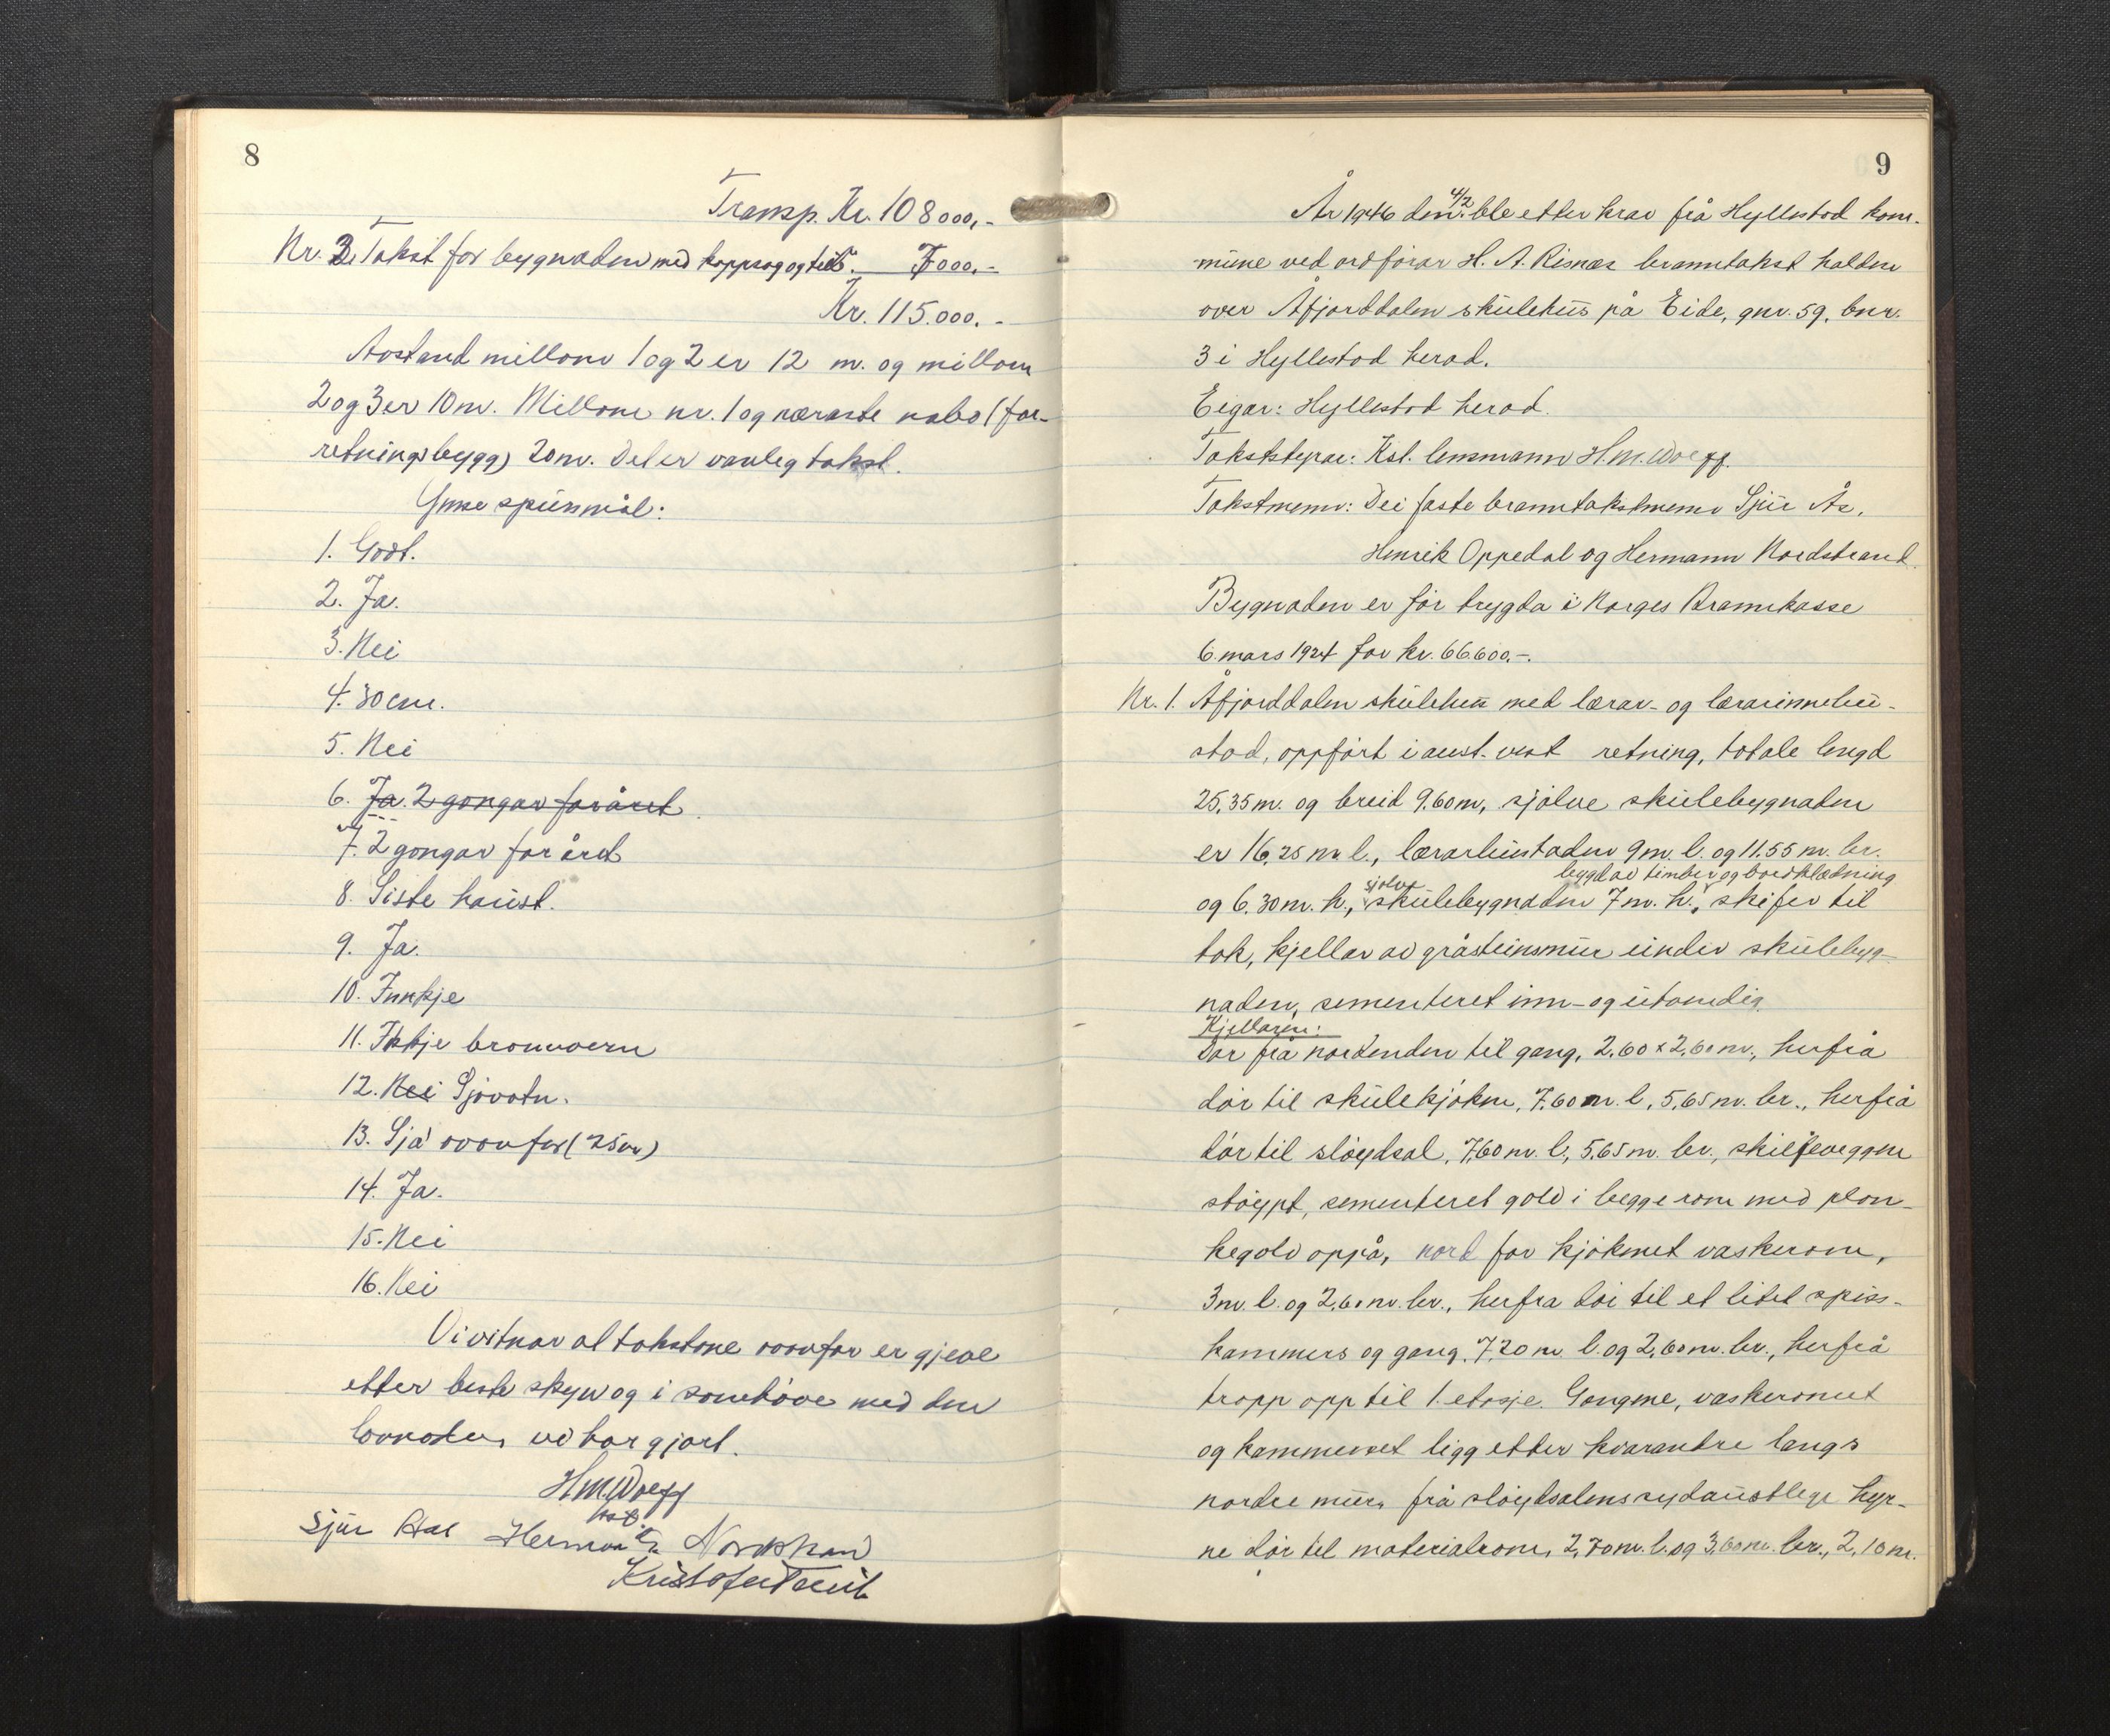 8
Transp. Kr. 108000,-
Nr. 3. Takst for bygnaden med kappsag og tilb. 7000,-
Kr. 115.000.-
Avstand millom 1 og 2 er 12 m. og millom
2 og 3 er 10 m. Millom nr. 1 og næraste nabo (for-
retningsbygg) 20 m. Det er vanleg takst.
Ymse spursmål:
1. Godt.
2. Ja.
3. Nei
4. 30 cm.
5. Nei
6. Ja. 2 gongar for året
7. 2 gongar for året
8. Siste haust.
9. Ja.
10. Innkje
11. Ikkje brannvern
12. Nei Sjøvatn.
13. Sjå ovanfor (25m)
14. Ja.
15. Nei
16. Nei
Vi vitnar at takstane ovanfor er gjeve
etter beste skyn og i samhøve med den
lovnaden vi har gjort.
H.M. Woegg
kst.
Sjur Aas Hermann Nordstrand
Kristofer
9
År 1946 den 4/2 ble etter krav frå Hyllestad kom-
mune ved ordførar H. A. Risnes branntakst halden
over Åfjorddalen skulehus på Eide, gnr. 59, bnr.
3 i Hyllestad herad.
Eigar: Hyllestad herad.
Takststyrar: Kst. lensmann H.M. Woegg.
Takstmenn: Dei faste branntakstmenn Sjur Ås,
Henrik Oppedal og Hermann Nordstrand.
Bygnaden er før trygda i Norges Brannkasse
6. mars 1924 for kr. 66.600,-.
Nr. 1. Åfjorddalen skulehus med lærar- og lærarinnebu-
stad, oppført i aust-vest retning, totale lengd
25,35 m. og breid 9,60 m, sjølve skulebygnaden
er 16,25 m. l., lærarbustaden 9 m. l. og 11,55 m. br.
bygd av timber og bordklædning
og 6,30 m. h., sjølve skulebygnaden 7 m. h., skifer til
tak, kjellar av gråsteinsmur under skulebyg-
naden, sementeret inn- og utvendig.
Kjellaren:
Dør frå nordenden til gang, 2,60 x 2,60 m., herfrå
dør til skulekjøken, 7,60 m. l, 5,65 m. br., herfrå
dør til sløydsal, 7,60 m. l., 5,65 m. br., skiljeveggen
støypt, sementeret golv i begge rom med plan-
kegolv oppå, nord for kjøkenet vaskerom,
3 m. l. og 2,60 m. br., herfra dør til et litet spiss-
kammers og gang, 7,20 m. l. og 2,60 m. br., herfrå
tropp opp til 1. etasje. Gangene, vaskeromet
og kammerset ligg etter kvarandre langs
nordre mur, frå sløydsalens sydaustlege hyr-
ne dør til materialrom, 2,70 m. l. og 3,60 m. br., 2,10 m.